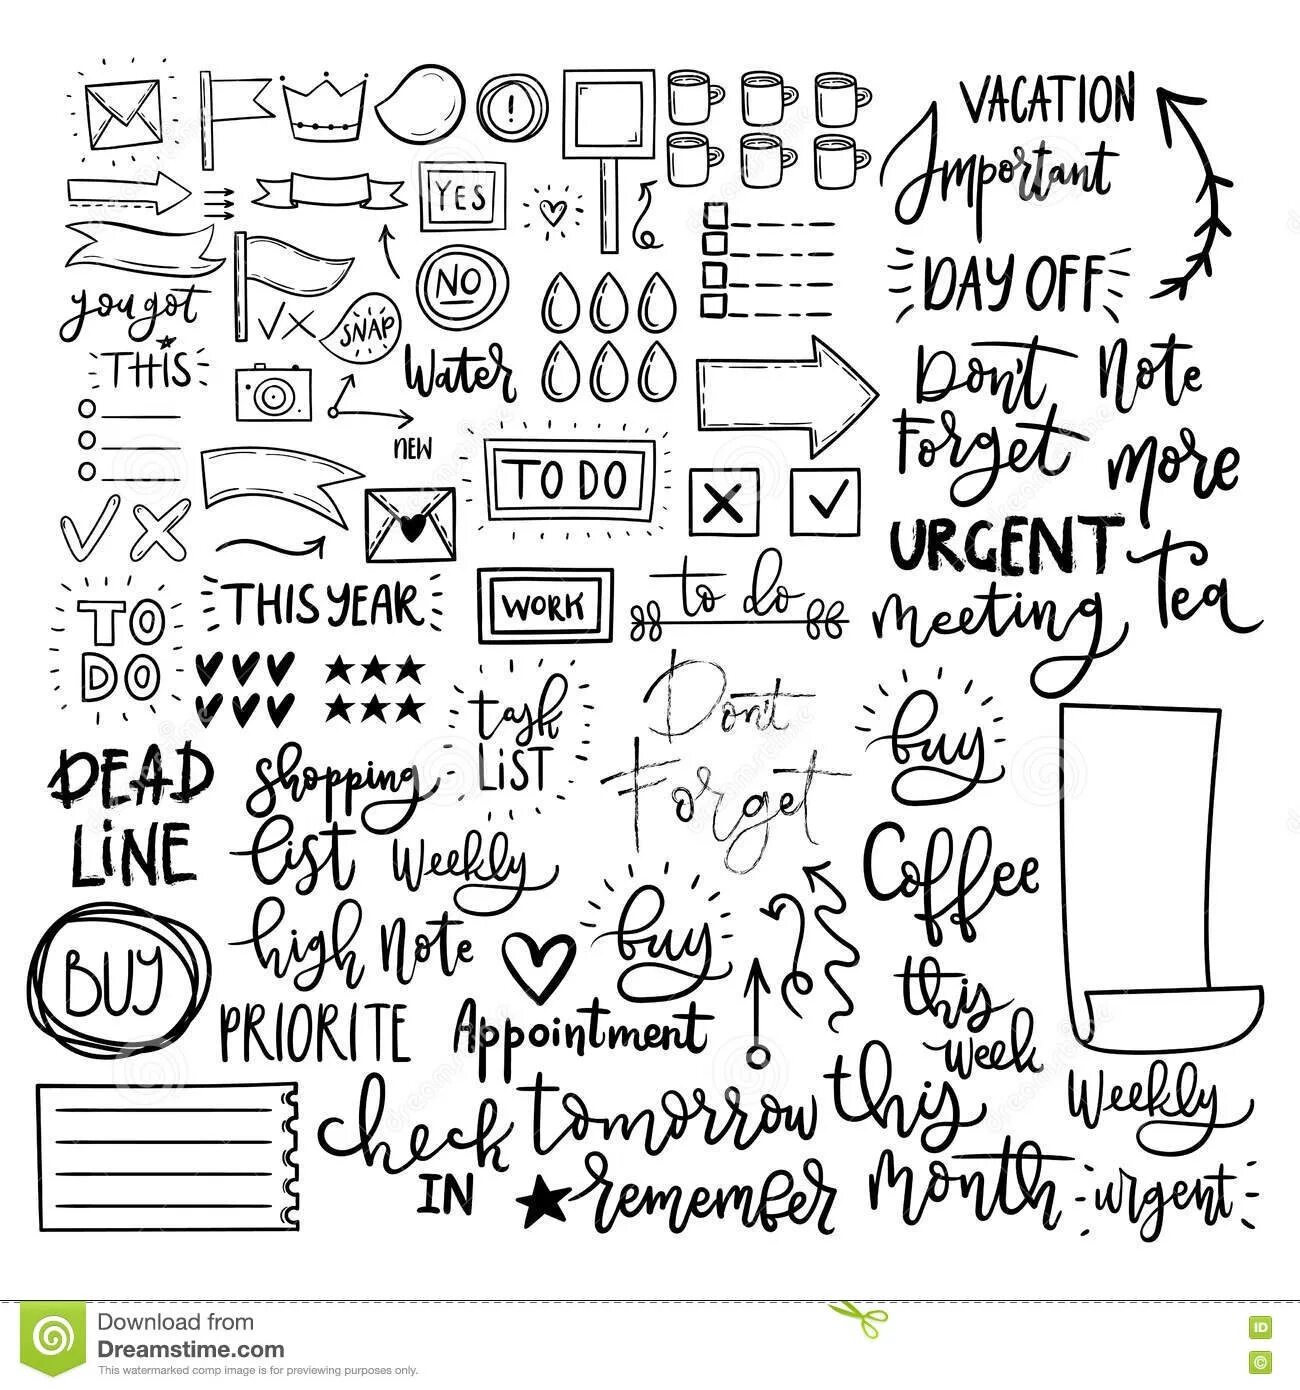 VACATION
Important
YES
DAY OFF
NO
you got
THIS
SNAP
Water
Don't
Forget
Note
more
NEW
TO DO
URGENT
meeting
Tea
THIS YEAR
WORK
to do
TO
DO
task
LIST
Don't
Forget
buy
DEAD
LINE
shopping
list
Weekly
Coffee
high Note
buy
BUY
PRIORITE
Appointment
this
week
check
IN
tomorrow
remember
this
month
Weekly
urgent
Download from
Dreamstime.com
This watermarked comp image is for previewing purposes only.
ID
©